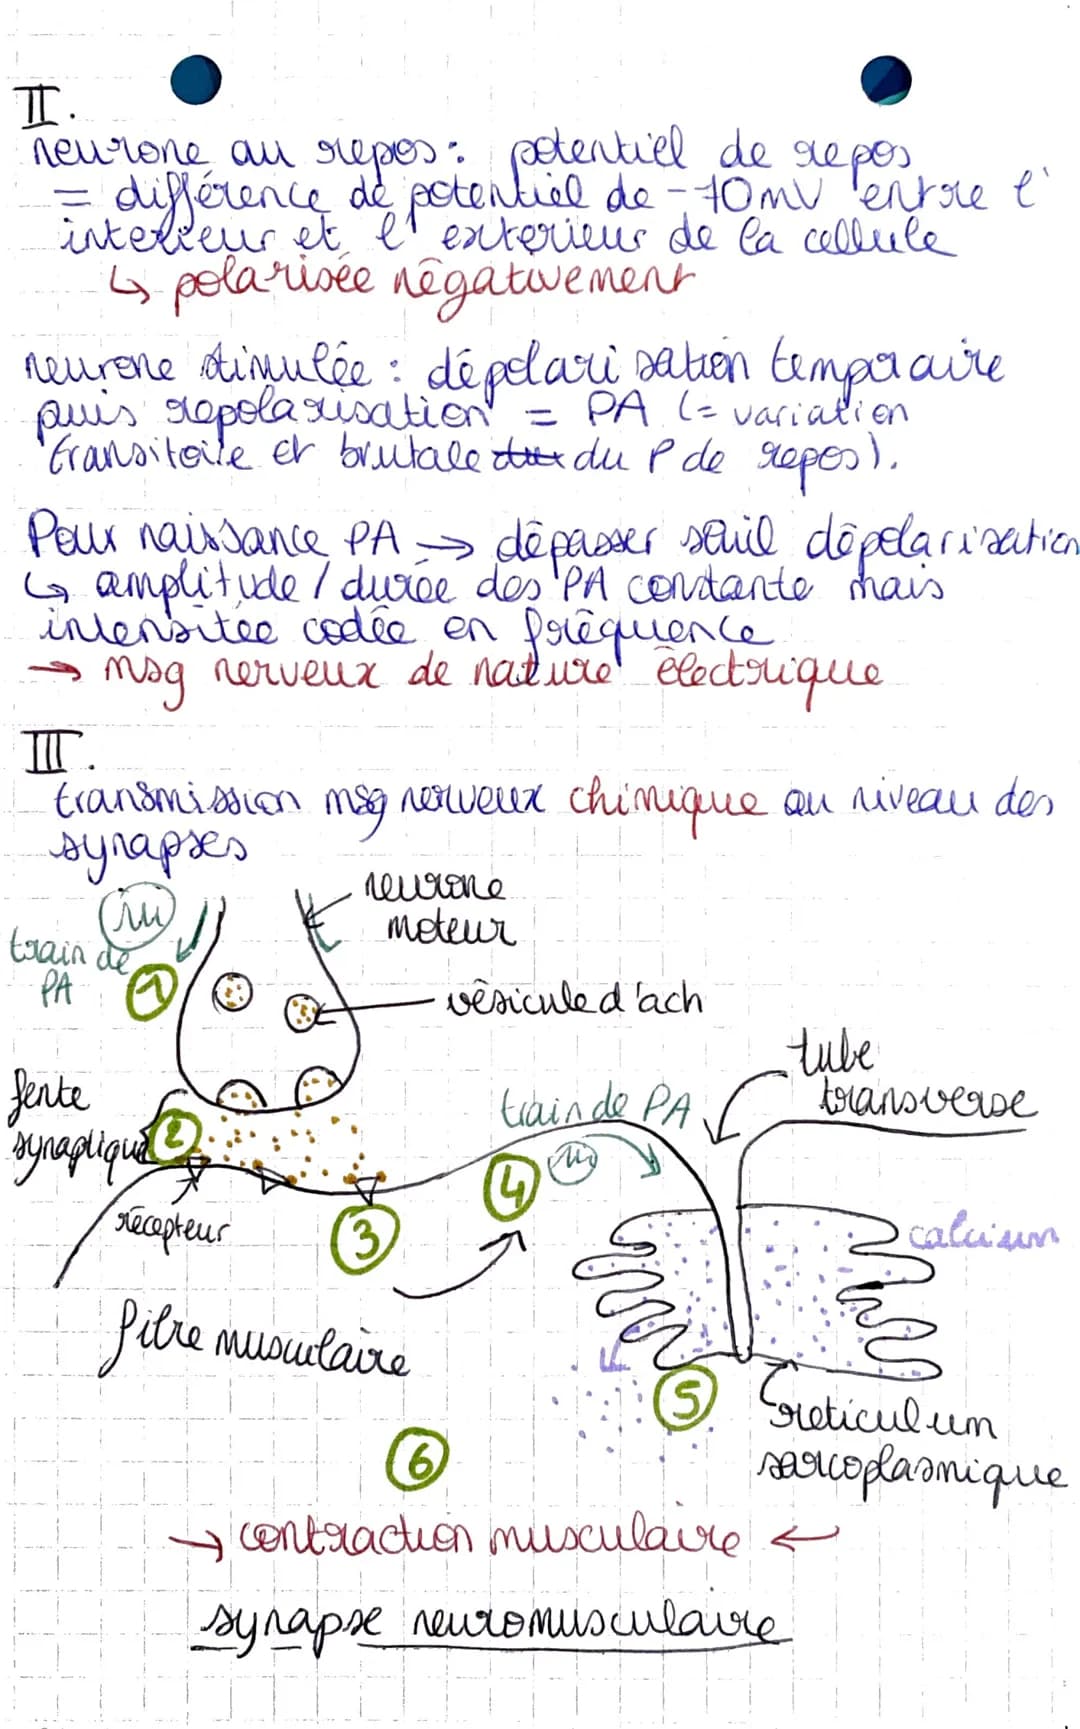 II.
neurone au repos : potentiel de repos
= différence de potentiel de -70mV entre l'
intérieur et l'extérieur de la cellule
↳ polarisée négativement
neurone stimulée : dépolarisation temporaire
puis repolarisation = PA (= variation
transitoire et brutale du P de repos).
Pour naissance PA → dépasser seuil dépolarisation
↳ amplitude / durée des PA constante mais
intensitée codée en fréquence
→ msg nerveux de nature électrique
III.
transmission msg nerveux chimique au niveau des
synapses
neurone
moteur
train de
PA
1
vésicule d'ach
tube
transverse
fente
synaptique
2
train de PA
4
récepteur
3
calcium
fibre musculaire
5
reticulum
sarcoplasmique
6
→ contraction musculaire ←
synapse neuromusculaire